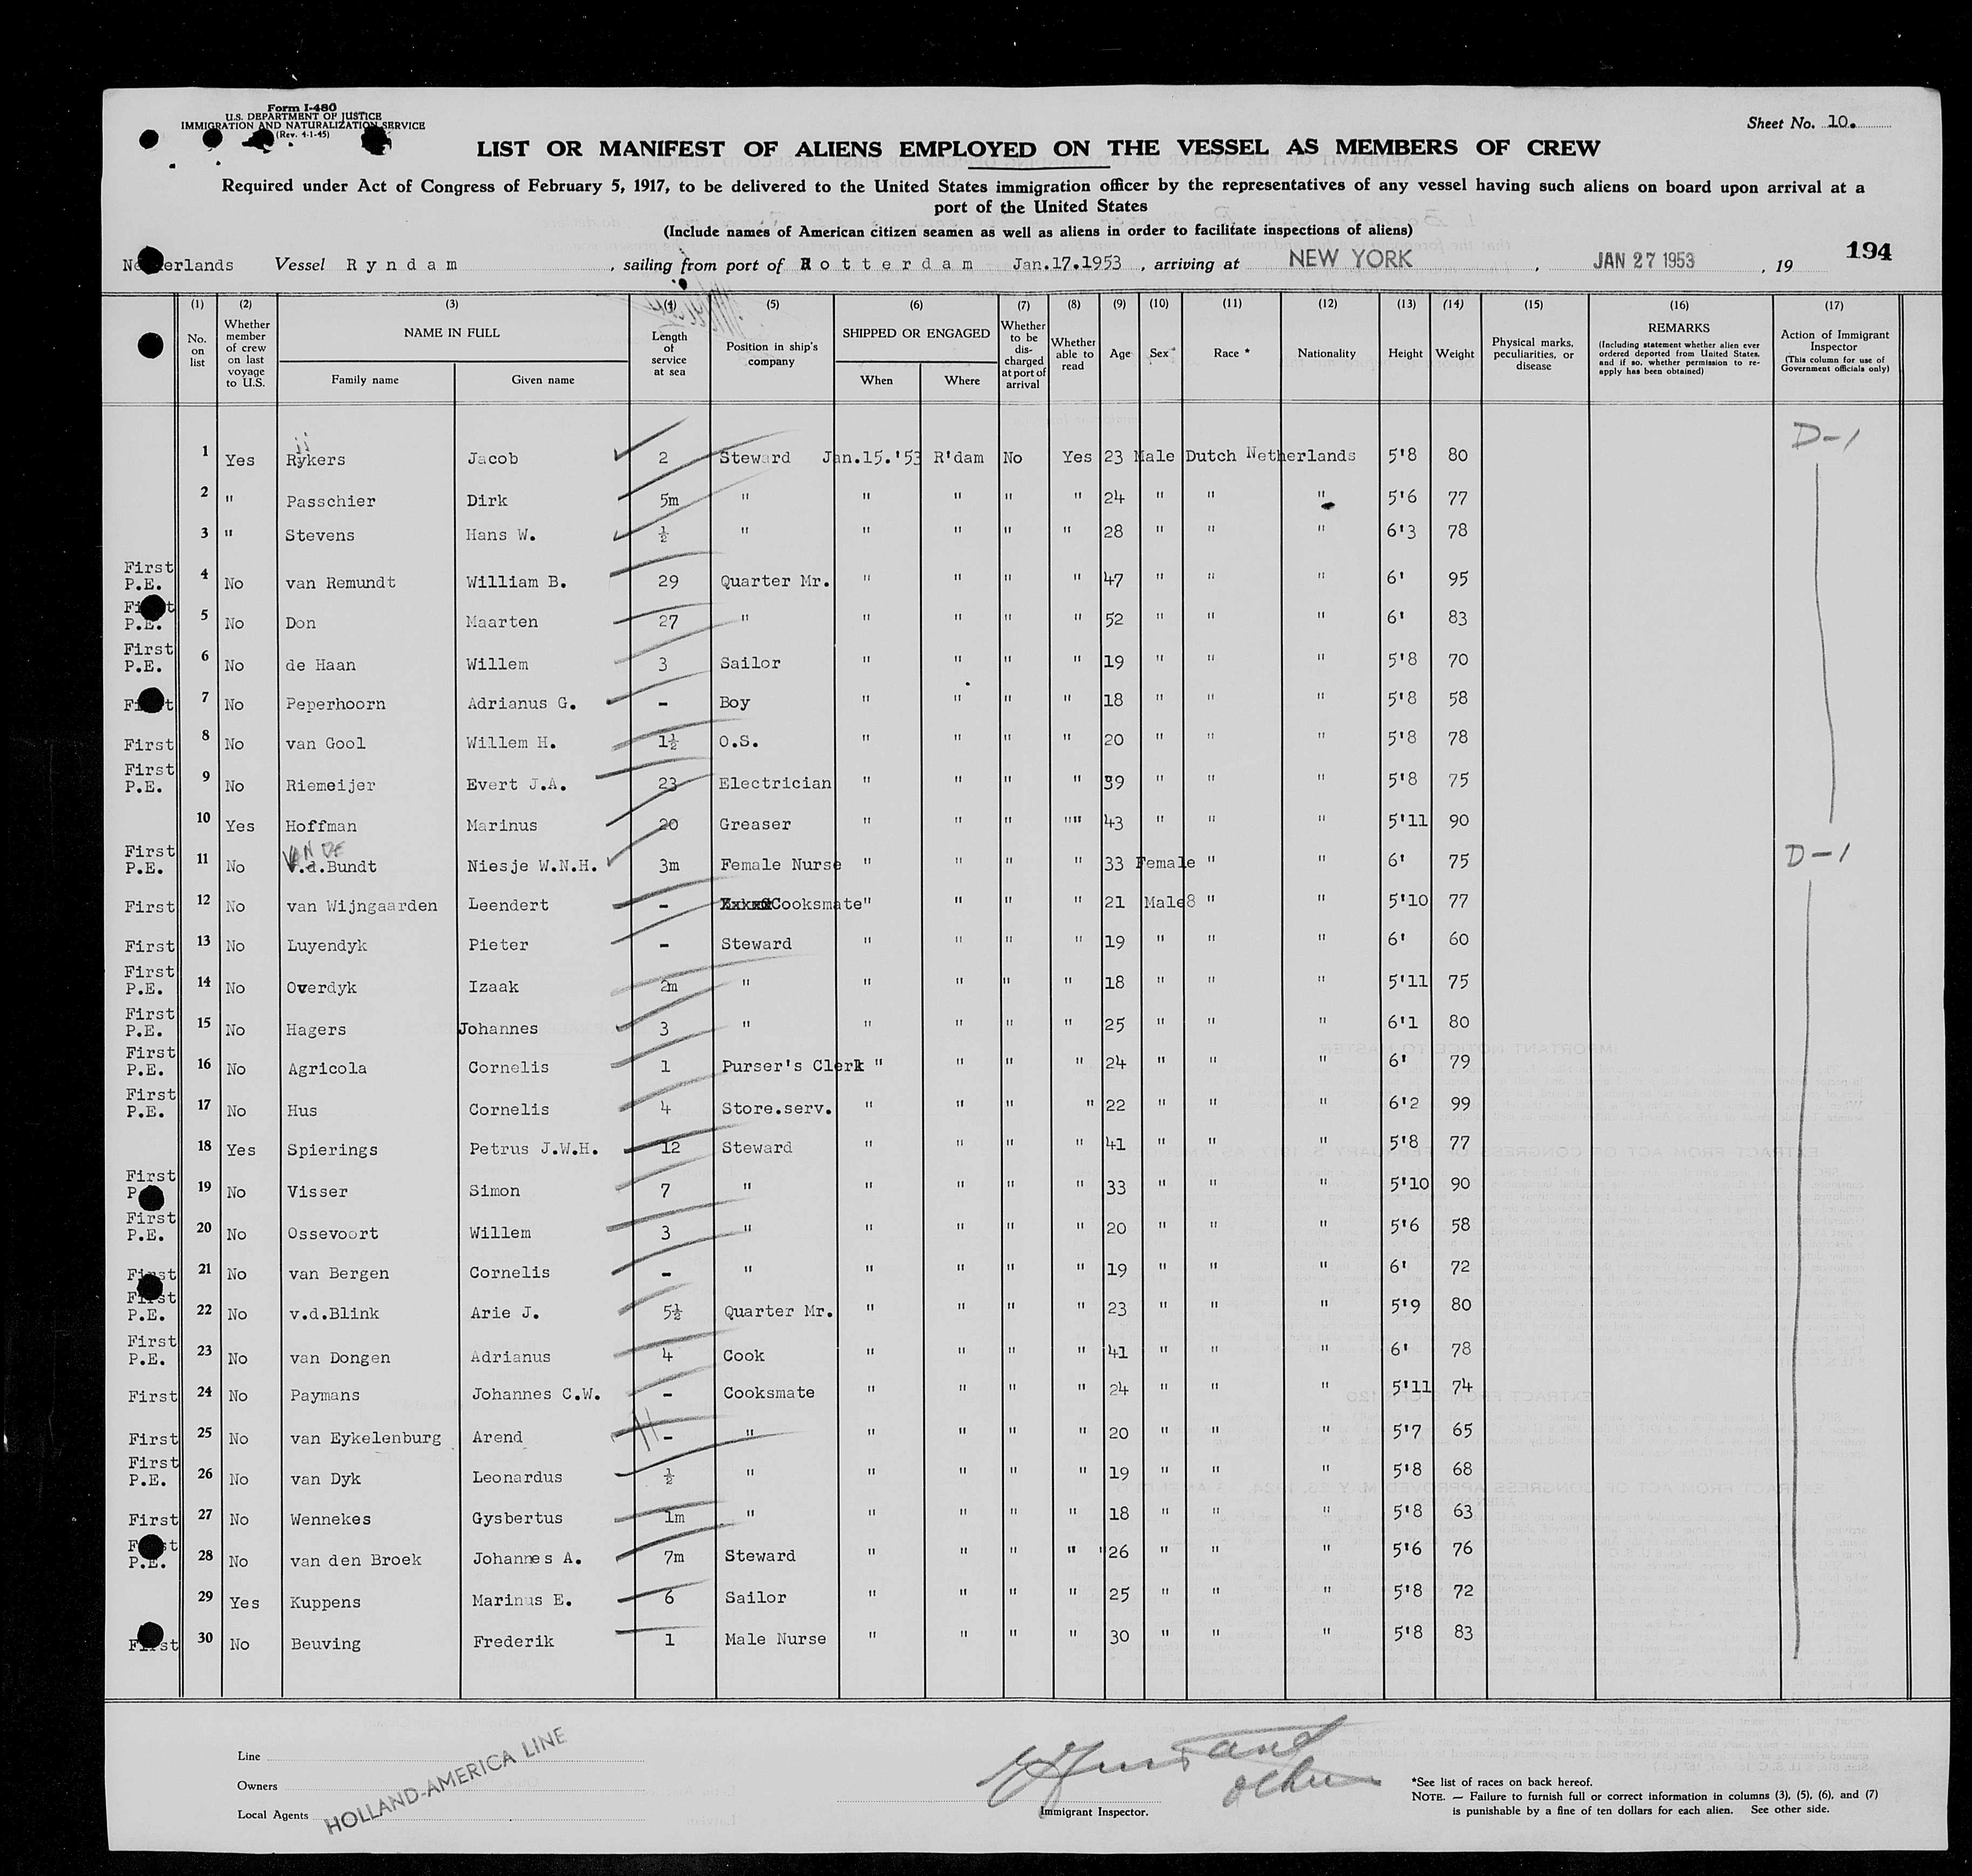 Form I-480
U.S. DEPARTMENT OF JUSTICE
IMMIGRATION AND NATURALIZATION SERVICE
(Rev. 4-1-45)
Sheet No. 10.
LIST OR MANIFEST OF ALIENS EMPLOYED ON THE VESSEL AS MEMBERS OF CREW
Required under Act of Congress of February 5, 1917, to be delivered to the United States immigration officer by the representatives of any vessel having such aliens on board upon arrival at a
port of the United States
(Include names of American citizen seamen as well as aliens in order to facilitate inspections of aliens)
194
Netherlands Vessel Ryndam , sailing from port of Rotterdam Jan.17.1953 , arriving at NEW YORK , JAN 27 1953 , 19
(1) (2) (3) (4) (5) (6) (7) (8) (9) (10) (11) (12) (13) (14) (15) (16) (17)
No. on list
Whether member of crew on last voyage to U.S.
NAME IN FULL
Family name Given name
Length of service at sea
Position in ship's company
SHIPPED OR ENGAGED
When Where
Whether to be discharged at port of arrival
Whether able to read
Age Sex* Race * Nationality Height Weight
Physical marks, peculiarities, or disease
REMARKS
(Including statement whether alien ever ordered deported from United States, and if so, whether permission to re-apply has been obtained)
Action of Immigrant Inspector
(This column for use of Government officials only)
D-1
1 Yes Rykers ij Jacob 2 Steward Jan.15.'53 R'dam No Yes 23 Male Dutch Netherlands 5'8 80
2 " Passchier Dirk 5m " " " " " 24 " " " 5'6 77
3 " Stevens Hans W. ½ " " " " " 28 " " " 6'3 78
First P.E. 4 No van Remundt William B. 29 Quarter Mr. " " " " 47 " " " 6' 95
First P.E. 5 No Don Maarten 27 " " " " " 52 " " " 6' 83
First P.E. 6 No de Haan Willem 3 Sailor " " " " 19 " " " 5'8 70
First 7 No Peperhoorn Adrianus G. - Boy " " " " 18 " " " 5'8 58
First 8 No van Gool Willem H. 1½ O.S. " " " " 20 " " " 5'8 78
First P.E. 9 No Riemeijer Evert J.A. 23 Electrician " " " " 39 " " " 5'8 75
10 Yes Hoffman Marinus 20 Greaser " " " "" 43 " " " 5'11 90
First P.E. 11 No VAN DE v.d.Bundt Niesje W.N.H. 3m Female Nurse " " " " 33 Female " " 6' 75 D-1
First 12 No van Wijngaarden Leendert - Cooksmate " " " " 21 Male8 " " 5'10 77
First 13 No Luyendyk Pieter - Steward " " " " 19 " " " 6' 60
First P.E. 14 No Overdyk Izaak 2m " " " " " 18 " " " 5'11 75
First P.E. 15 No Hagers Johannes 3 " " " " " 25 " " " 6'1 80
First P.E. 16 No Agricola Cornelis 1 Purser's Clerk " " " " 24 " " " 6' 79
First P.E. 17 No Hus Cornelis 4 Store.serv. " " " " 22 " " " 6'2 99
18 Yes Spierings Petrus J.W.H. 12 Steward " " " " 41 " " " 5'8 77
First P.E. 19 No Visser Simon 7 " " " " " 33 " " " 5'10 90
First P.E. 20 No Ossevoort Willem 3 " " " " " 20 " " " 5'6 58
First 21 No van Bergen Cornelis - " " " " " 19 " " " 6' 72
First P.E. 22 No v.d.Blink Arie J. 5½ Quarter Mr. " " " " 23 " " " 5'9 80
First P.E. 23 No van Dongen Adrianus 4 Cook " " " " 41 " " " 6' 78
First 24 No Paymans Johannes C.W. - Cooksmate " " " " 24 " " " 5'11 74
First 25 No van Eykelenburg Arend - " " " " " 20 " " " 5'7 65
First P.E. 26 No van Dyk Leonardus ½ " " " " " 19 " " " 5'8 68
First 27 No Wennekes Gysbertus 1m " " " " " 18 " " " 5'8 63
First P.E. 28 No van den Broek Johannes A. 7m Steward " " " " 26 " " " 5'6 76
29 Yes Kuppens Marinus E. 6 Sailor " " " " 25 " " " 5'8 72
First 30 No Beuving Frederik 1 Male Nurse " " " " 30 " " " 5'8 83
Line
Owners
Local Agents
HOLLAND-AMERICA LINE
Immigrant Inspector.
*See list of races on back hereof.
NOTE. — Failure to furnish full or correct information in columns (3), (5), (6), and (7)
is punishable by a fine of ten dollars for each alien. See other side.